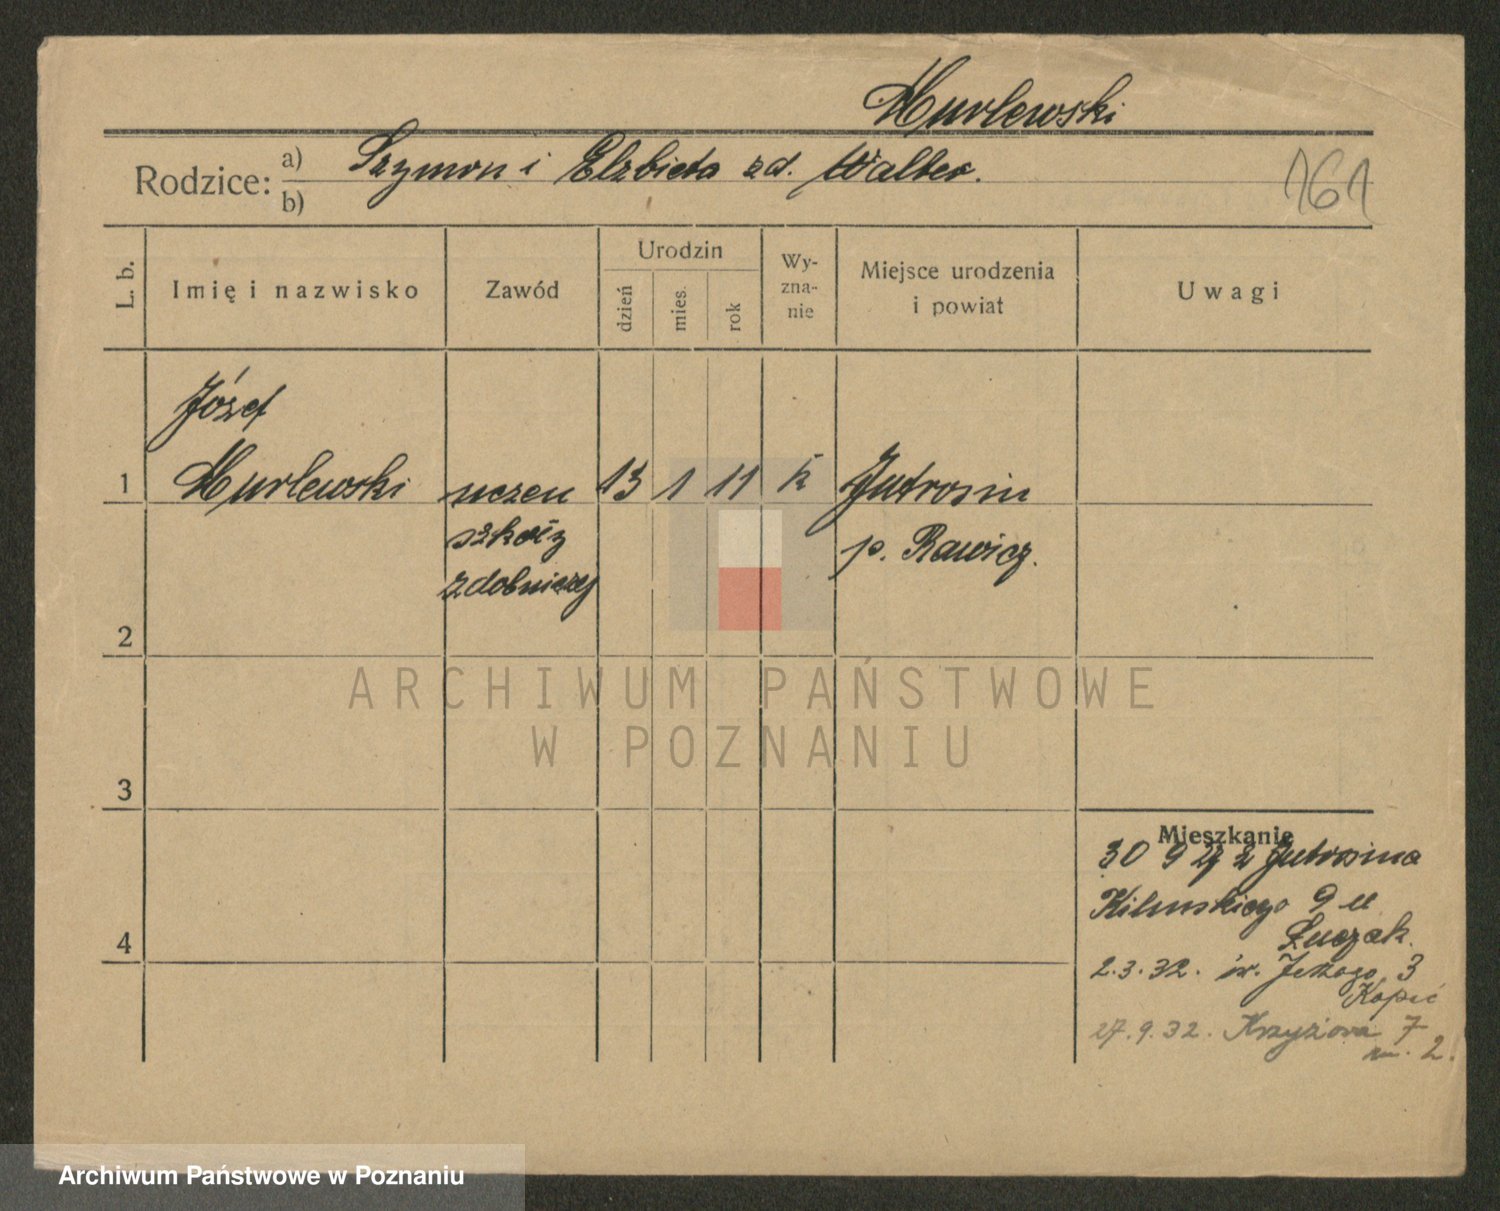 Murlewski
Rodzice: a) Szymon i Elżbieta zd. Walter.
b)
161
L. b.
Imię i nazwisko
Zawód
Urodzin
dzień
mies.
rok
Wy-
zna-
nie
Miejsce urodzenia
i powiat
Uwagi
Józef
1 Murlewski uczeń 13 1 11 k Jutrosin
szkoły p. Rawicz.
zdobniczej
2
3
4
Mieszkanie
30 9 z Jutrosina
Kilińskiego 9 u
Łuczak.
2.3.32. św. Jerzego 3
27.9.32. Krzyżowa 7
m. 2.
ARCHIWUM PAŃSTWOWE
W POZNANIU
Archiwum Państwowe w Poznaniu